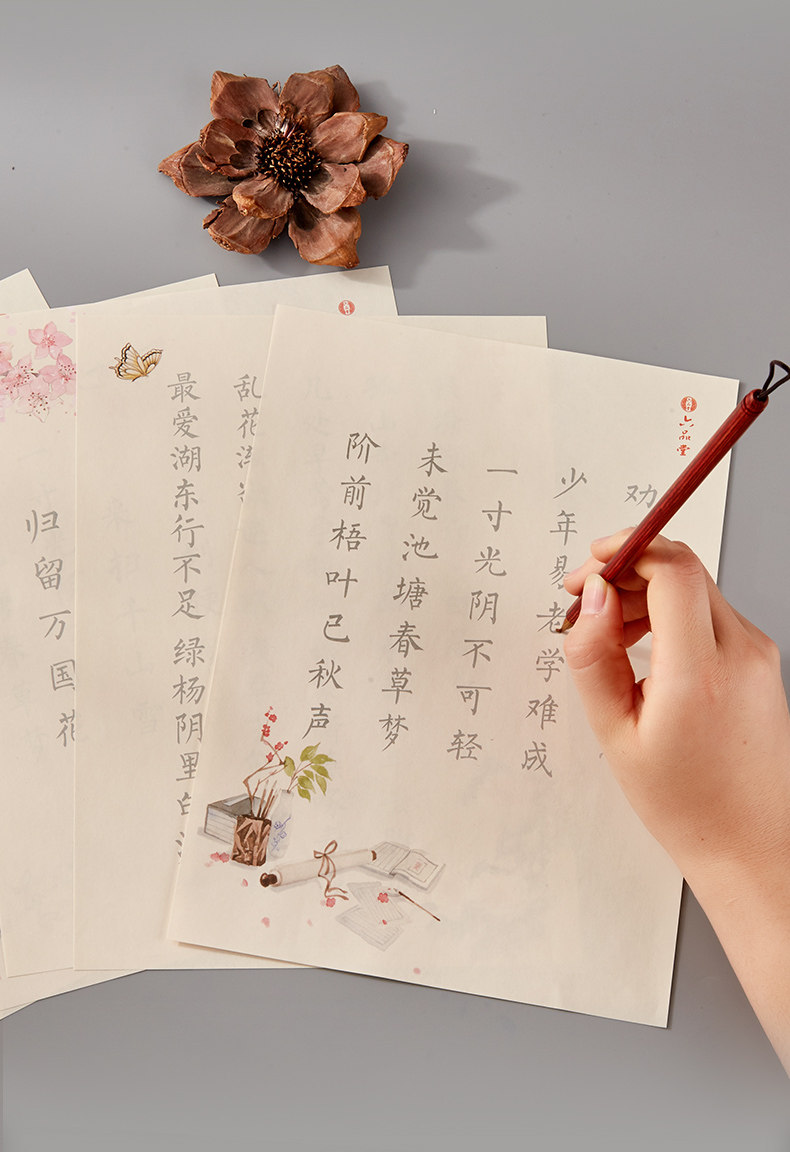 六品堂
劝
少年易老学难成
一寸光阴不可轻
未觉池塘春草梦
阶前梧叶已秋声
乱花
最爱湖东行不足 绿杨阴里白
归留万国花